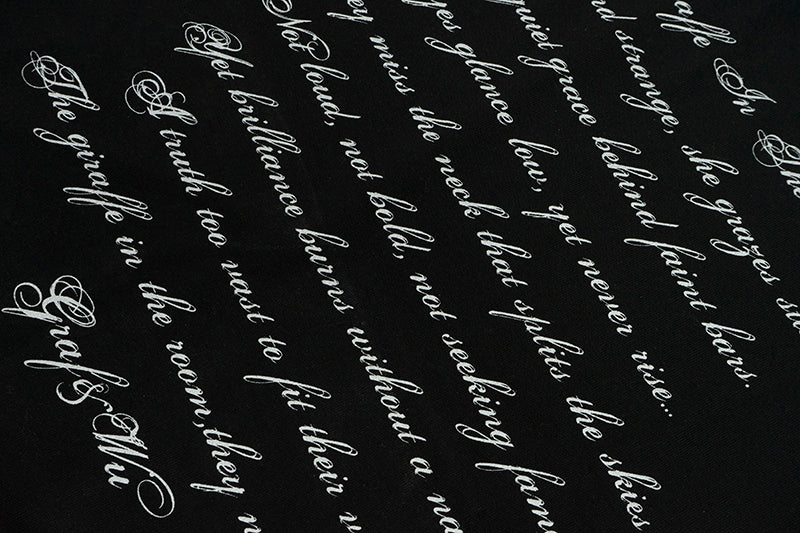 affe In The
nd strange, she grazes
uiet grace behind faint bars.
yes glance low, yet never rise...
ey miss the neck that splits the skies
Not loud, not bold, not seeking fam
Yet brilliance burns without a na
A truth too vast to fit their
The giraffe in the room,they
Graf&Wu